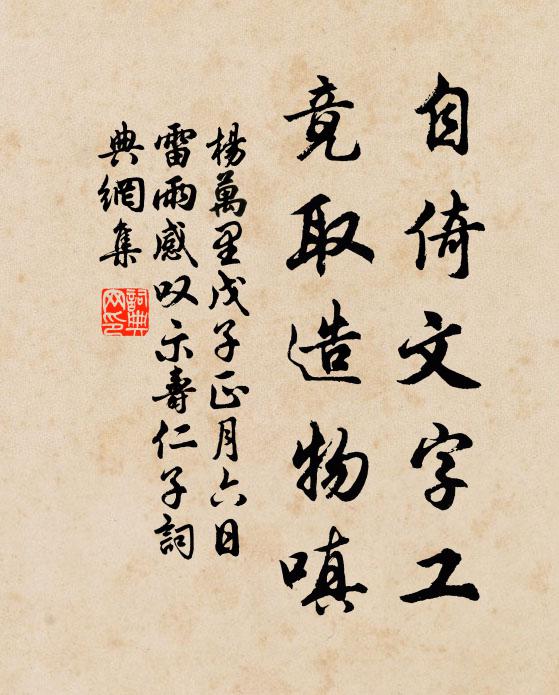 自倚文字工
竟取造物嗔
楊萬里戊子正月六日
雷雨感叹示壽仁子詞
典網集
詞典网印